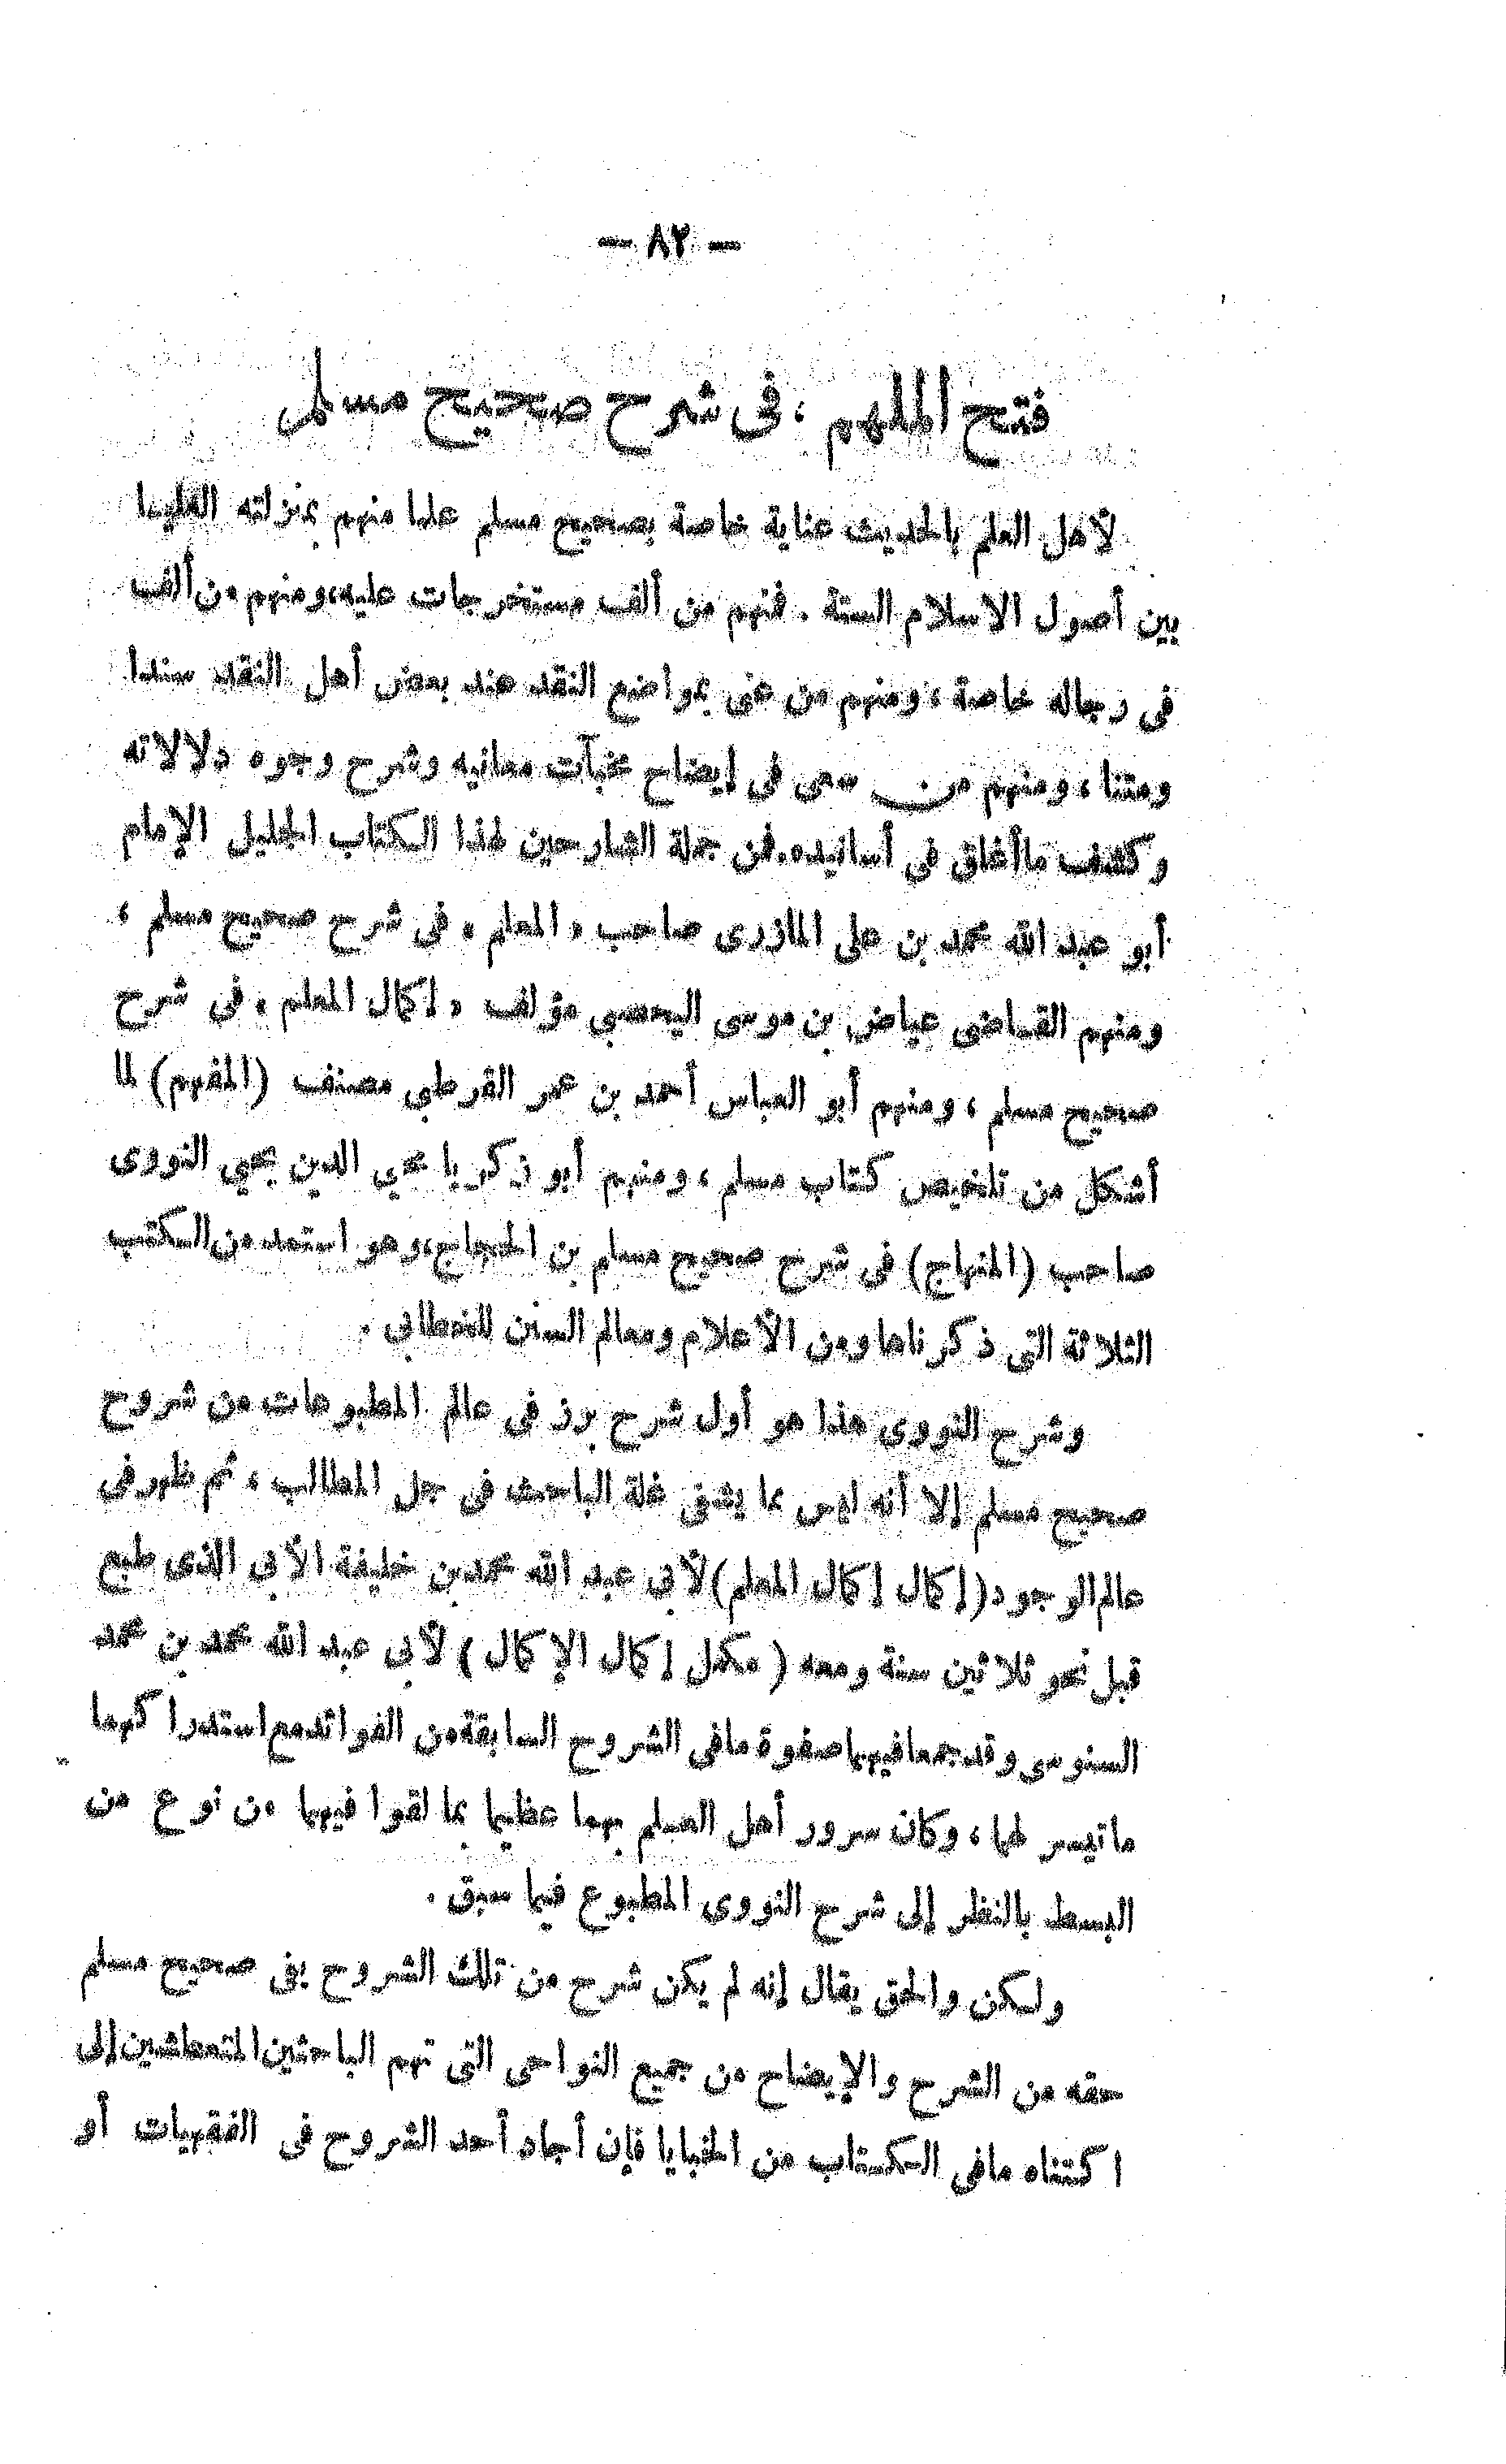 — ٨٢ —
فتح الملهم، فى شرح صحيح مسلم
لأهل العلم بالحديث عناية خاصة بصحيح مسلم علما منهم بمنزلته العليا
بين أصول الاسلام الستة . فنهم من ألف مستخرجات عليه، ومنهم من ألف
فى رجاله خاصة، ومنهم من عنى بمواضع النقد عند بعض أهل النقد سندا
ومتنا، ومنهم من سعى فى إيضاح مخبآت معانيه وشرح وجوه دلالاته
وكشف ماأغلق فى أسانيده. فن جملة الشارحين لهذا الكتاب الجليل الإمام
أبو عبد الله محمد بن على المازرى صاحب « المعلم » فى شرح صحيح مسلم ،
ومنهم القاضى عياض بن موسى اليحصبى مؤلف « إكمال المعلم » فى شرح
صحيح مسلم ، ومنهم أبو العباس أحمد بن عمر القرطبى مصنف (المفهم) لما
أشكل من تلخيص كتاب مسلم ، ومنهم أبو زكريا محيي الدين يحيي النووى
صاحب (المنهاج) فى شرح صحيح مسلم بن الحجاج، وهو استمد من الكتب
الثلاثة التى ذكرناها ومن الأعلام ومعالم السنن للخطابى .
وشرح النووى هذا هو أول شرح برز فى عالم المطبوعات من شروح
صحيح مسلم إلا أنه ليس مما يشفى غلة الباحث فى جل المطالب ، ثم ظهر فى
عالم الوجود (إكمال إكمال المعلم) لأبى عبد الله محمد بن خليفة الأبى الذى طبع
قبل نحو ثلاثين سنة ومعه ( مكمل إكمال الإكمال ) لأبى عبد الله محمد بن محمد
السنوسى وقد جمعا فيهما صفوة مافى الشروح السابقة من الفوائد مع استدراكهما
ماتيسر لهما ، وكان سرور أهل العلم بهما عظيما بما لقوا فيهما من نوع من
البسط بالنظر إلى شرح النووى المطبوع فيما سبق .
ولكن والحق يقال إنه لم يكن شرح من تلك الشروح يفى صحيح مسلم
حقه من الشرح والإيضاح من جميع النواحى التى تهم الباحثين المتعطشين إلى
اكتناه مافى الكتاب من الخبايا فإن أجاد أحد الشروح فى الفقهيات أو